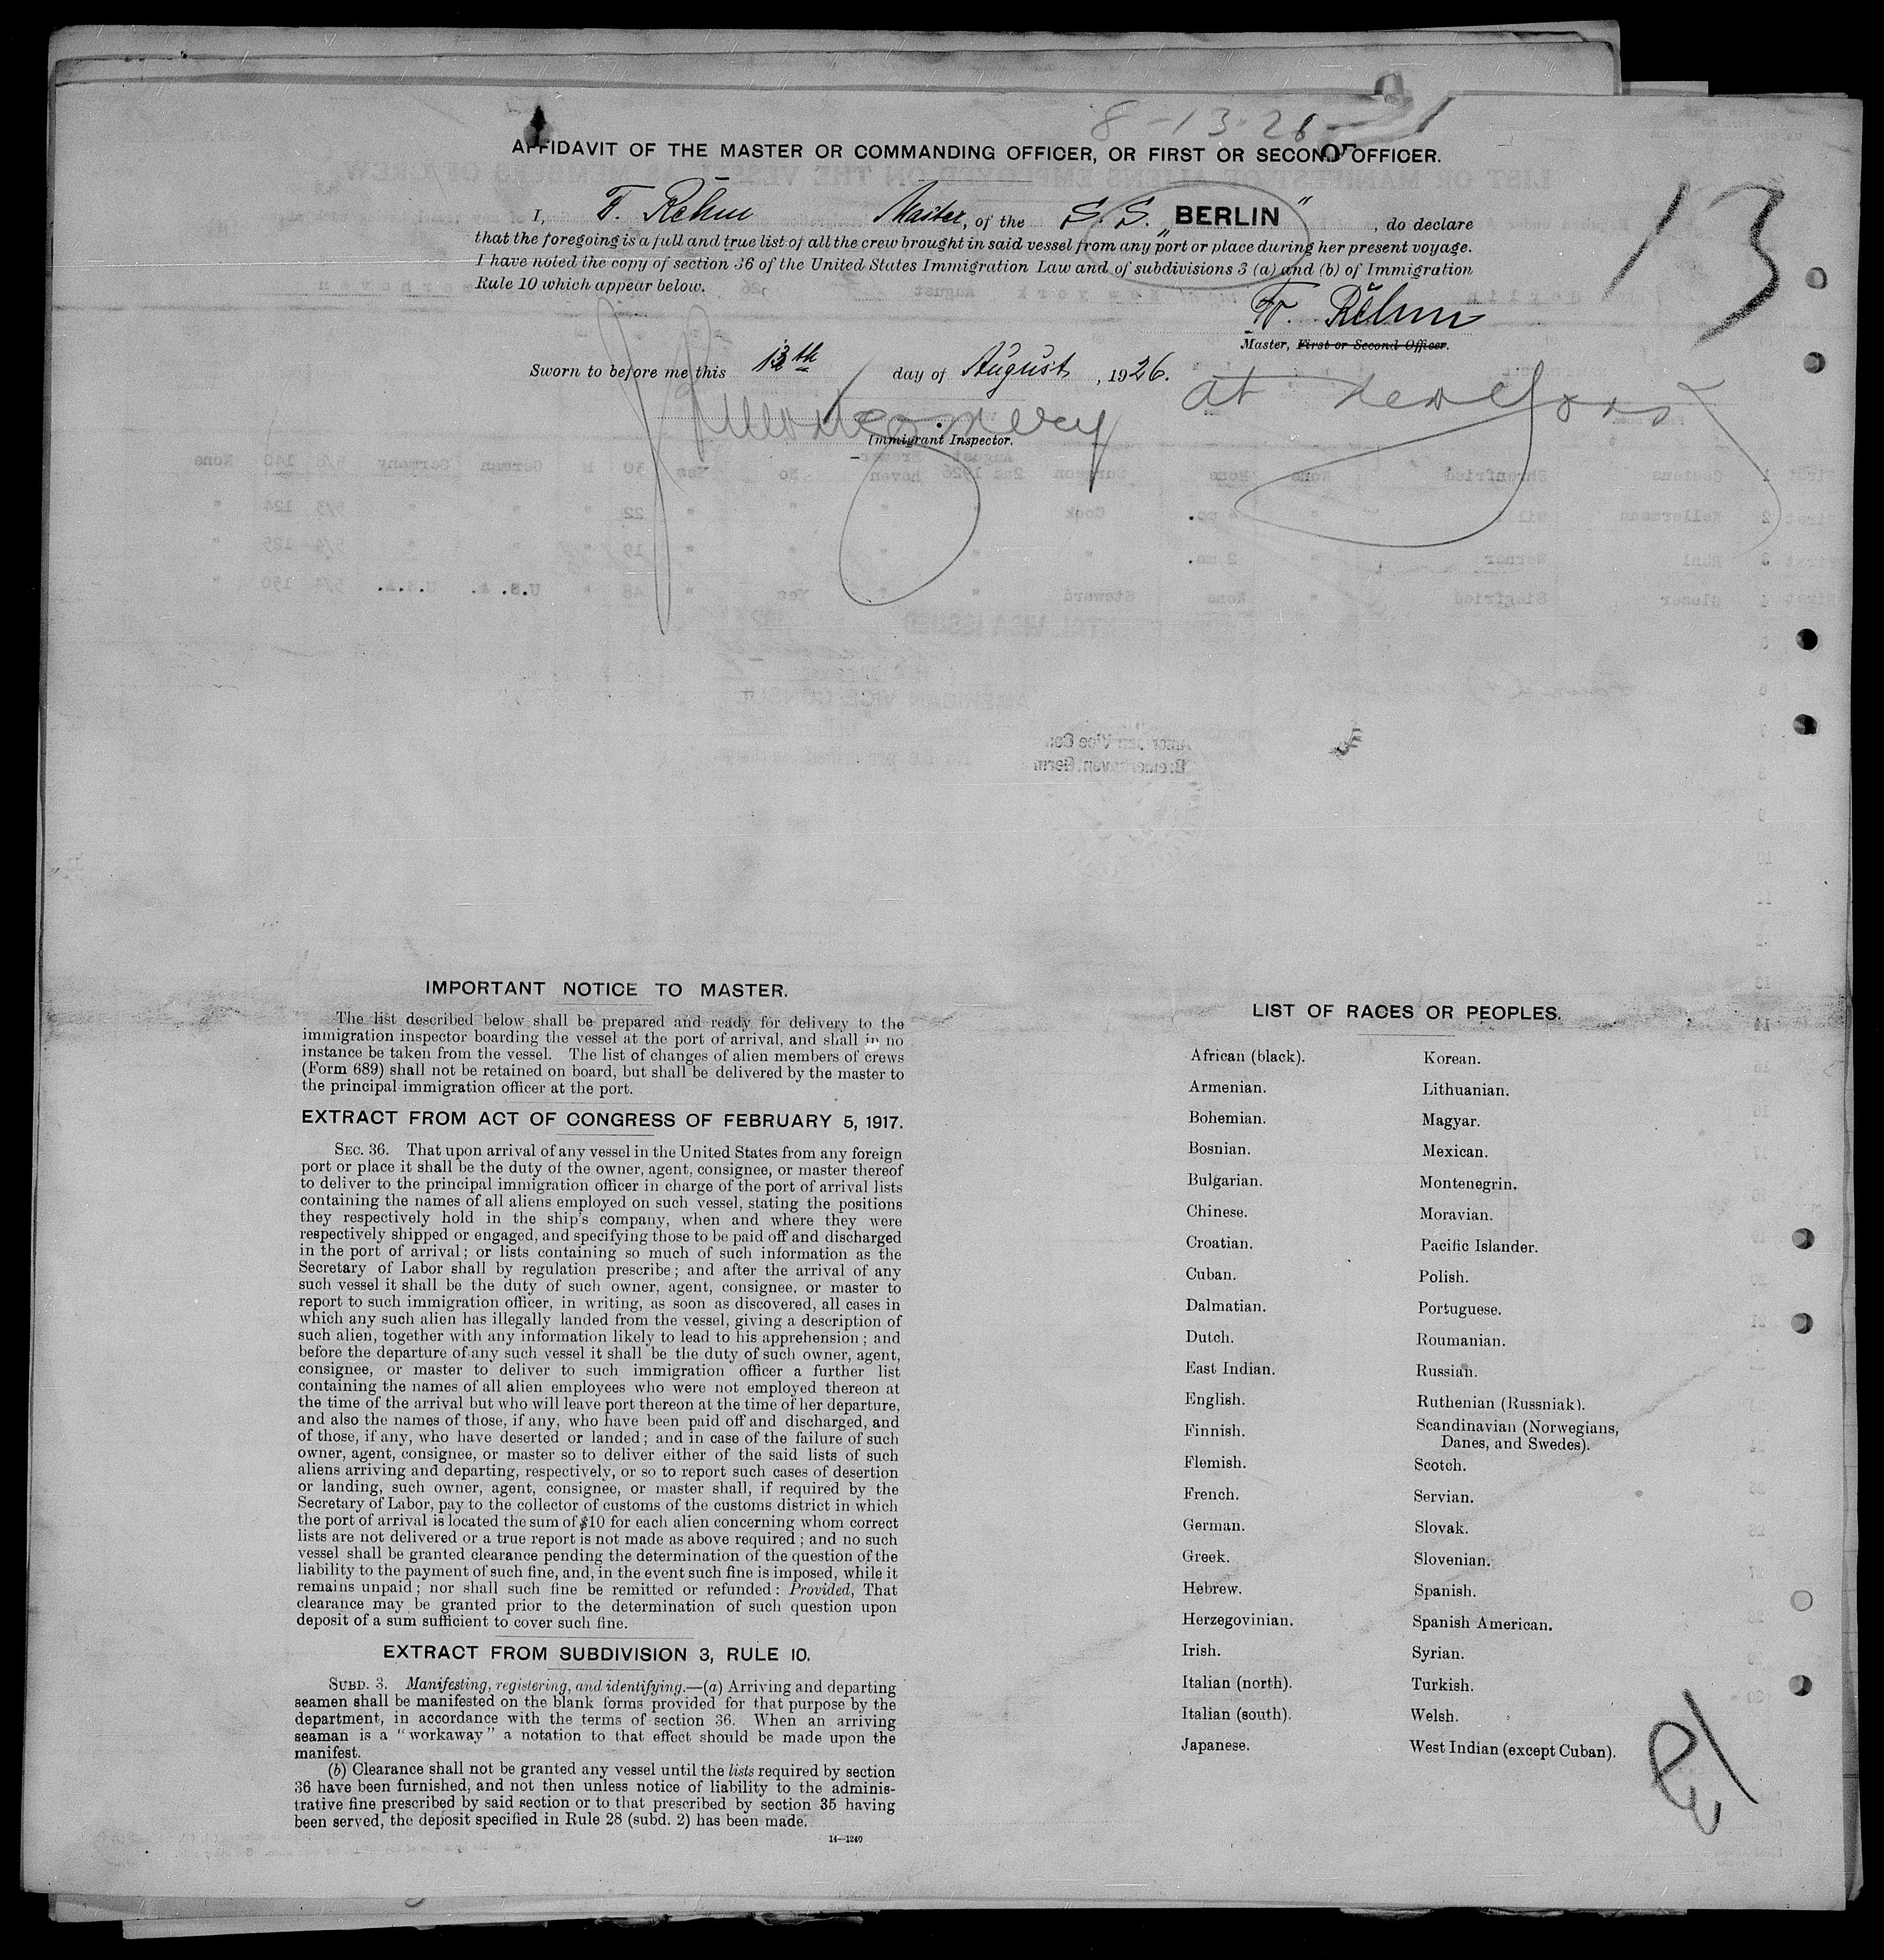 8-13-26
AFFIDAVIT OF THE MASTER OR COMMANDING OFFICER, OR FIRST OR SECOND OFFICER.
I, F. Rehm Master, of the S. S. „BERLIN", do declare
that the foregoing is a full and true list of all the crew brought in said vessel from any port or place during her present voyage.
I have noted the copy of section 36 of the United States Immigration Law and of subdivisions 3 (a) and (b) of Immigration
Rule 10 which appear below.
13
F. Rehm
Master, First or Second Officer.
Sworn to before me this 13th day of August, 1926.
at New York
Immigrant Inspector.
IMPORTANT NOTICE TO MASTER.
The list described below shall be prepared and ready for delivery to the
immigration inspector boarding the vessel at the port of arrival, and shall in no
instance be taken from the vessel. The list of changes of alien members of crews
(Form 689) shall not be retained on board, but shall be delivered by the master to
the principal immigration officer at the port.
EXTRACT FROM ACT OF CONGRESS OF FEBRUARY 5, 1917.
SEC. 36. That upon arrival of any vessel in the United States from any foreign
port or place it shall be the duty of the owner, agent, consignee, or master thereof
to deliver to the principal immigration officer in charge of the port of arrival lists
containing the names of all aliens employed on such vessel, stating the positions
they respectively hold in the ship's company, when and where they were
respectively shipped or engaged, and specifying those to be paid off and discharged
in the port of arrival; or lists containing so much of such information as the
Secretary of Labor shall by regulation prescribe; and after the arrival of any
such vessel it shall be the duty of such owner, agent, consignee, or master to
report to such immigration officer, in writing, as soon as discovered, all cases in
which any such alien has illegally landed from the vessel, giving a description of
such alien, together with any information likely to lead to his apprehension; and
before the departure of any such vessel it shall be the duty of such owner, agent,
consignee, or master to deliver to such immigration officer a further list
containing the names of all alien employees who were not employed thereon at
the time of the arrival but who will leave port thereon at the time of her departure,
and also the names of those, if any, who have been paid off and discharged, and
of those, if any, who have deserted or landed; and in case of the failure of such
owner, agent, consignee, or master so to deliver either of the said lists of such
aliens arriving and departing, respectively, or so to report such cases of desertion
or landing, such owner, agent, consignee, or master shall, if required by the
Secretary of Labor, pay to the collector of customs of the customs district in which
the port of arrival is located the sum of $10 for each alien concerning whom correct
lists are not delivered or a true report is not made as above required; and no such
vessel shall be granted clearance pending the determination of the question of the
liability to the payment of such fine, and, in the event such fine is imposed, while it
remains unpaid; nor shall such fine be remitted or refunded: Provided, That
clearance may be granted prior to the determination of such question upon
deposit of a sum sufficient to cover such fine.
EXTRACT FROM SUBDIVISION 3, RULE 10.
SUBD. 3. Manifesting, registering, and identifying.—(a) Arriving and departing
seamen shall be manifested on the blank forms provided for that purpose by the
department, in accordance with the terms of section 36. When an arriving
seaman is a "workaway" a notation to that effect should be made upon the
manifest.
(b) Clearance shall not be granted any vessel until the lists required by section
36 have been furnished, and not then unless notice of liability to the adminis-
trative fine prescribed by said section or to that prescribed by section 35 having
been served, the deposit specified in Rule 28 (subd. 2) has been made.
14—1240
LIST OF RACES OR PEOPLES.
African (black).
Armenian.
Bohemian.
Bosnian.
Bulgarian.
Chinese.
Croatian.
Cuban.
Dalmatian.
Dutch.
East Indian.
English.
Finnish.
Flemish.
French.
German.
Greek.
Hebrew.
Herzegovinian.
Irish.
Italian (north).
Italian (south).
Japanese.
Korean.
Lithuanian.
Magyar.
Mexican.
Montenegrin.
Moravian.
Pacific Islander.
Polish.
Portuguese.
Roumanian.
Russian.
Ruthenian (Russniak).
Scandinavian (Norwegians,
Danes, and Swedes).
Scotch.
Servian.
Slovak.
Slovenian.
Spanish.
Spanish American.
Syrian.
Turkish.
Welsh.
West Indian (except Cuban).